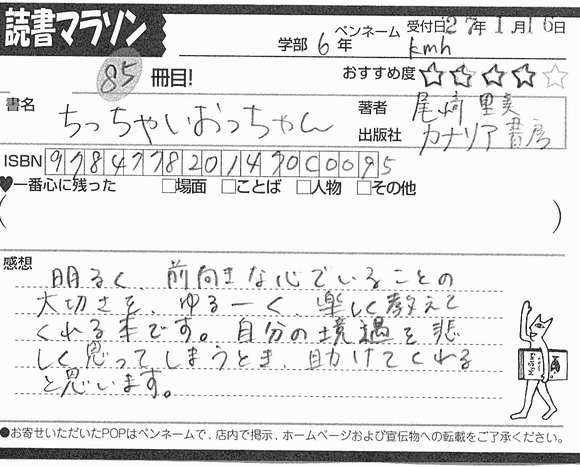 読書マラソン
学部 6年
ペンネーム kmh
受付日27年1月16日
85 冊目!
おすすめ度 ★★★★☆
書名 ちっちゃいおっちゃん
著者 尾崎 里美
出版社 カナリア書房
ISBN 9784778201470C0095
♥一番心に残った □場面 □ことば □人物 □その他
( )
感想
明るく、前向きな心でいることの
大切さを、ゆるーく、楽しく教えて
くれる本です。自分の境遇を悲
しく思ってしまうとき 助けてくれる
と思います。
●お寄せいただいたPOPはペンネームで、店内で掲示、ホームページおよび宣伝物への転載をご了承ください。